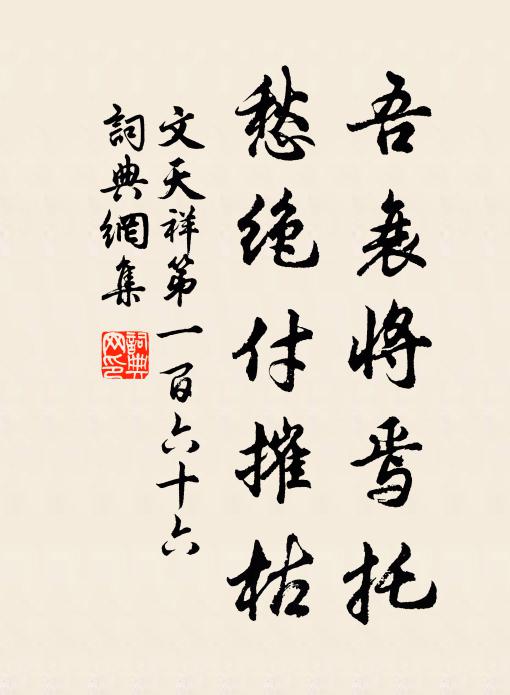 吾衰將焉托
愁绝付摧枯
文天祥第一百六十六
詞典網集
詞典网印